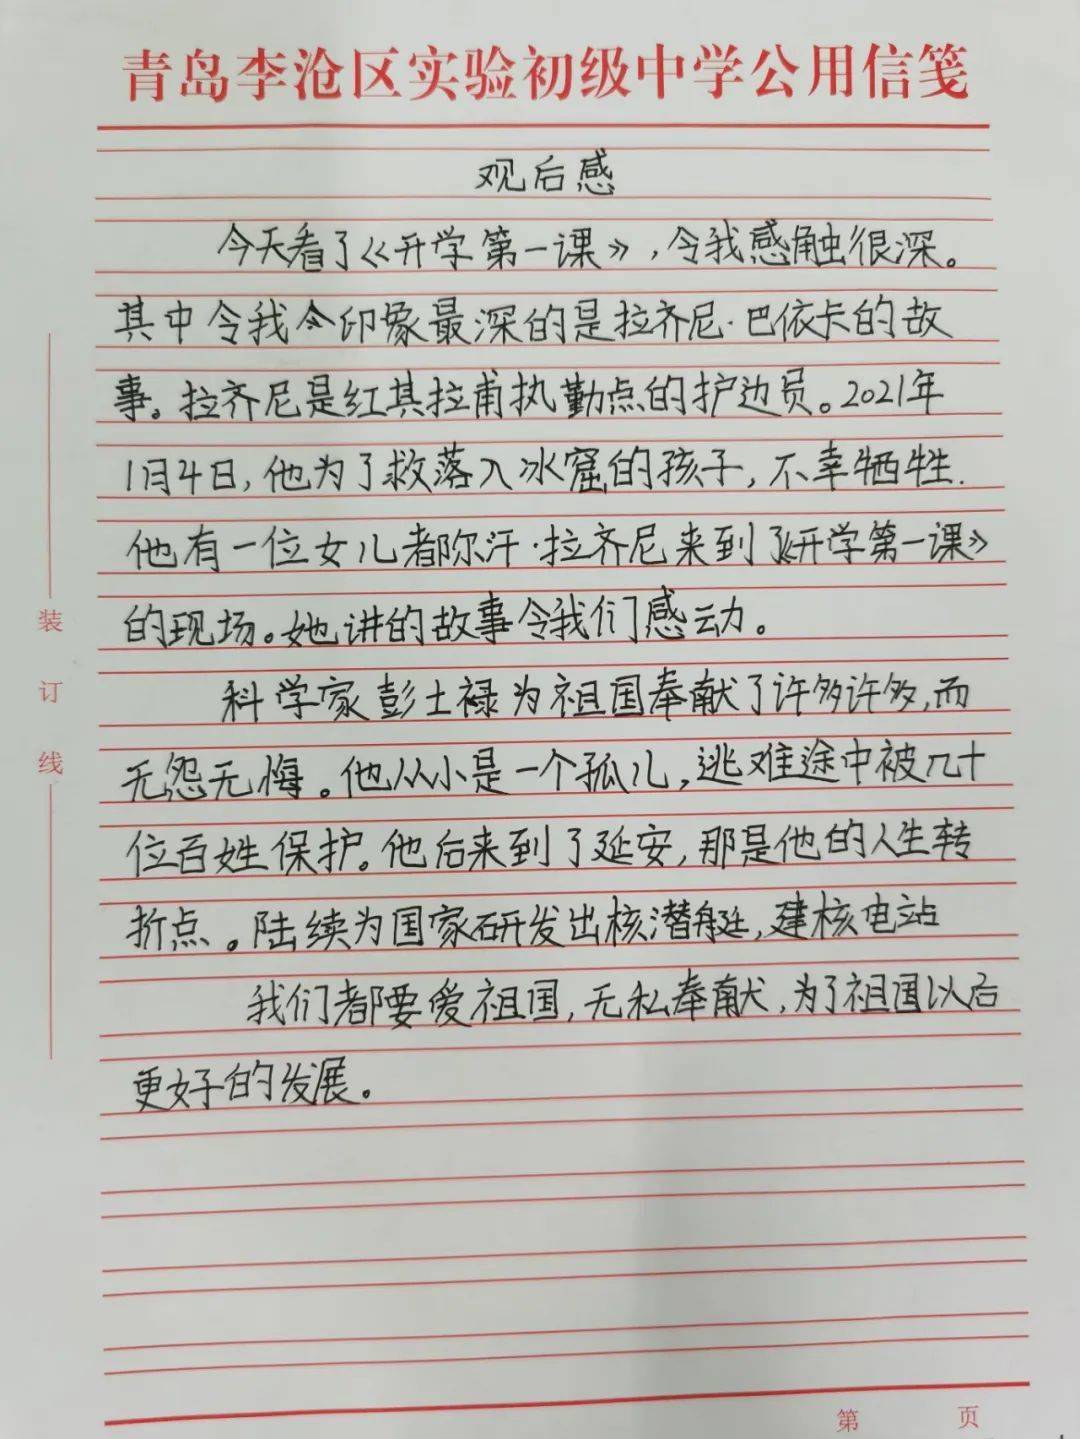 青岛李沧区实验初级中学公用信笺
观后感
今天看了《开学第一课》,令我感触很深。
其中令我令印象最深的是拉齐尼·巴依卡的故
事。拉齐尼是红其拉甫执勤点的护边员。2021年
1月4日,他为了救落入冰窟的孩子,不幸牺牲.
他有一位女儿都尔汗·拉齐尼来到了《开学第一课》
的现场。她讲的故事令我们感动。
科学家彭士禄为祖国奉献了许多许多,而
无怨无悔。他从小是一个孤儿,逃难途中被几十
位百姓保护。他后来到了延安,那是他的人生转
折点。陆续为国家研发出核潜艇,建核电站
我们都要爱祖国,无私奉献,为了祖国以后
更好的发展。
装
订
线
第 页